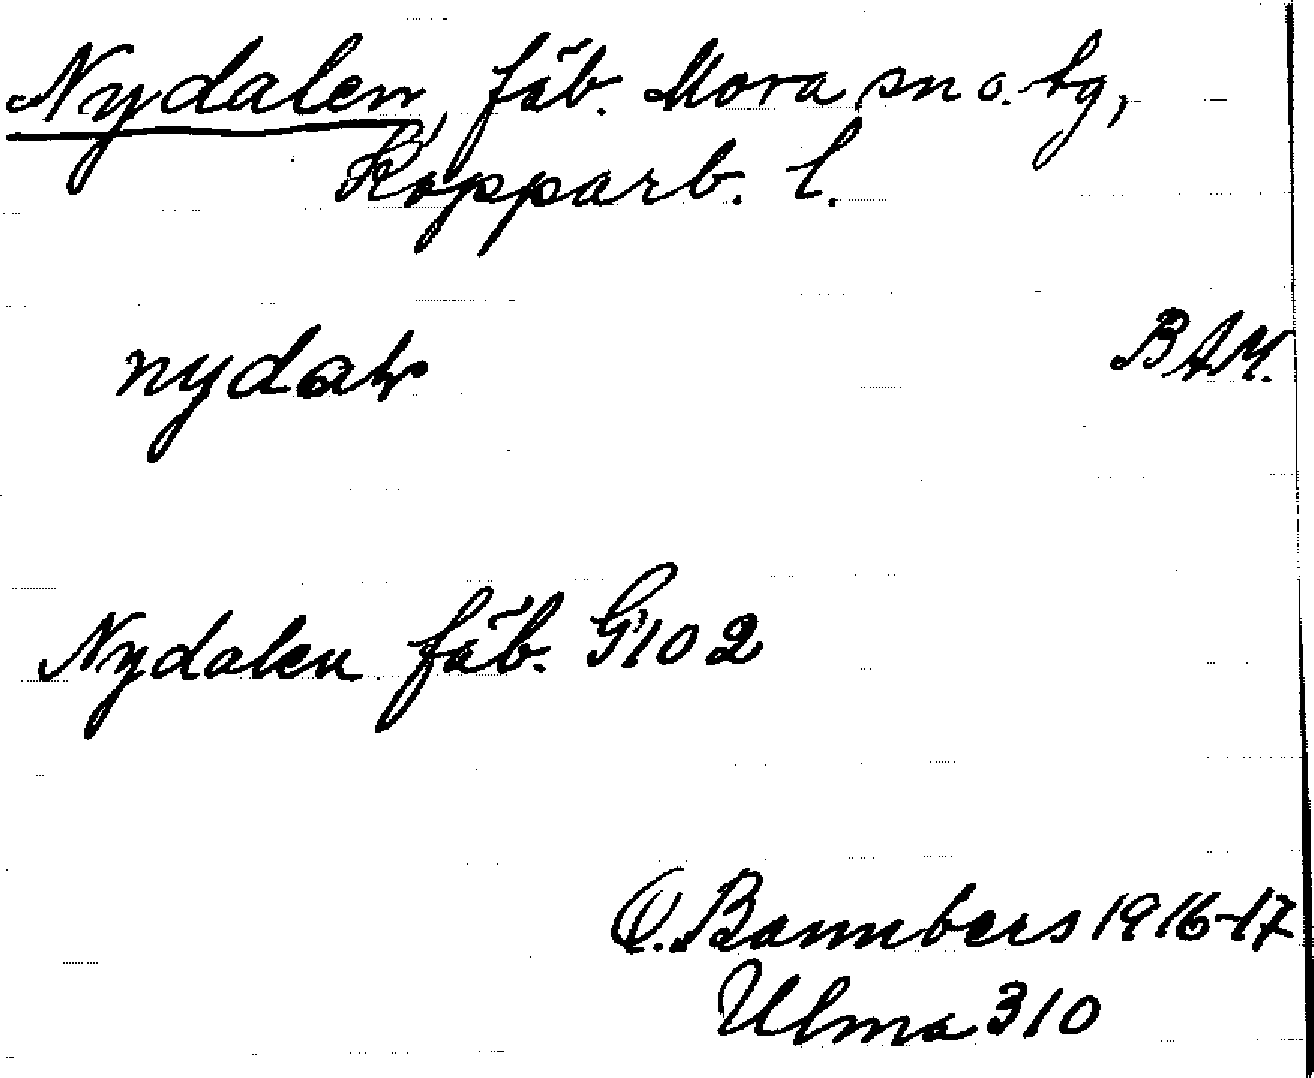 Nydalen, fäb. Mora sn o. tg,
Kopparb. l.
B.A.M.
Nydalen fäb. G102
O. Bannbers 1916-17
Ulma 310